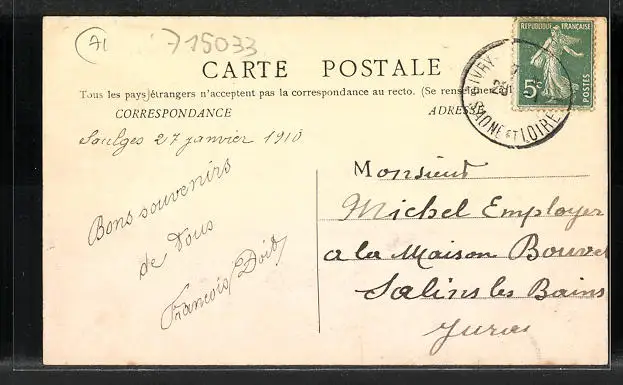 71
715033
CARTE POSTALE
Tous les pays étrangers n'acceptent pas la correspondance au recto. (Se renseigner
CORRESPONDANCE
ADRESSE
RÉPUBLIQUE FRANÇAISE
5c
POSTES
GIVRY
SAONE ET LOIRE
Saulges 27 janvier 1910
Bons souvenirs
de Tous
Francois
Monsieur
Michel Employer
a la Maison Bouvet
Salins les Bains
Jura